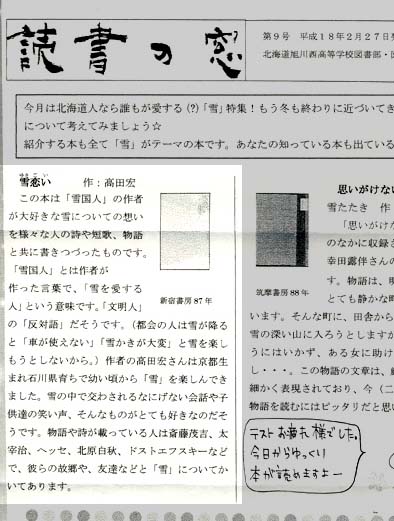 読書の窓
第9号 平成18年2月27日
北海道旭川西高等学校図書部・
今月は北海道人なら誰もが愛する(?)「雪」特集!もう冬も終わりに近づいてき
について考えてみましょう☆
紹介する本も全て「雪」がテーマの本です。あなたの知っている本も出ている
雪恋い 作:高田宏
この本は「雪国人」の作者
が大好きな雪についての想い
を様々な人の詩や短歌、物語
と共に書きつづったものです。
「雪国人」とは作者が
作った言葉で、「雪を愛する
人」という意味です。「文明人」
の「反対語」だそうです。(都会の人は雪が降る
と「車が使えない」「雪かきが大変」と雪を楽し
もうとしないから。)作者の高田宏さんは京都生
まれ石川県育ちで幼い頃から「雪」を楽しんでき
ました。雪の中で交わされるなにげない会話や子
供達の笑い声、そんなものがとても好きなのだそ
うです。物語や詩が載っている人は斎藤茂吉、太
宰治、ヘッセ、北原白秋、ドストエフスキーなど
で、彼らの故郷や、友達などと「雪」についてか
いてあります。
新宿書房87年
思いがけない
雪たたき 作
「思いがけな
のなかに収録さ
幸田露伴さんの
す。物語は、
とても静かな町
います。そんな町に、田舎から
雪の深い山に入ろうとしますが
うにはいかず、ある女に助け
し・・・。この物語の文章は、
細かく表現されており、今(二
物語を読むにはピッタリだと思い
筑摩書房88年
テストお疲れ様でした。
今日からゆっくり
本が読めますよー